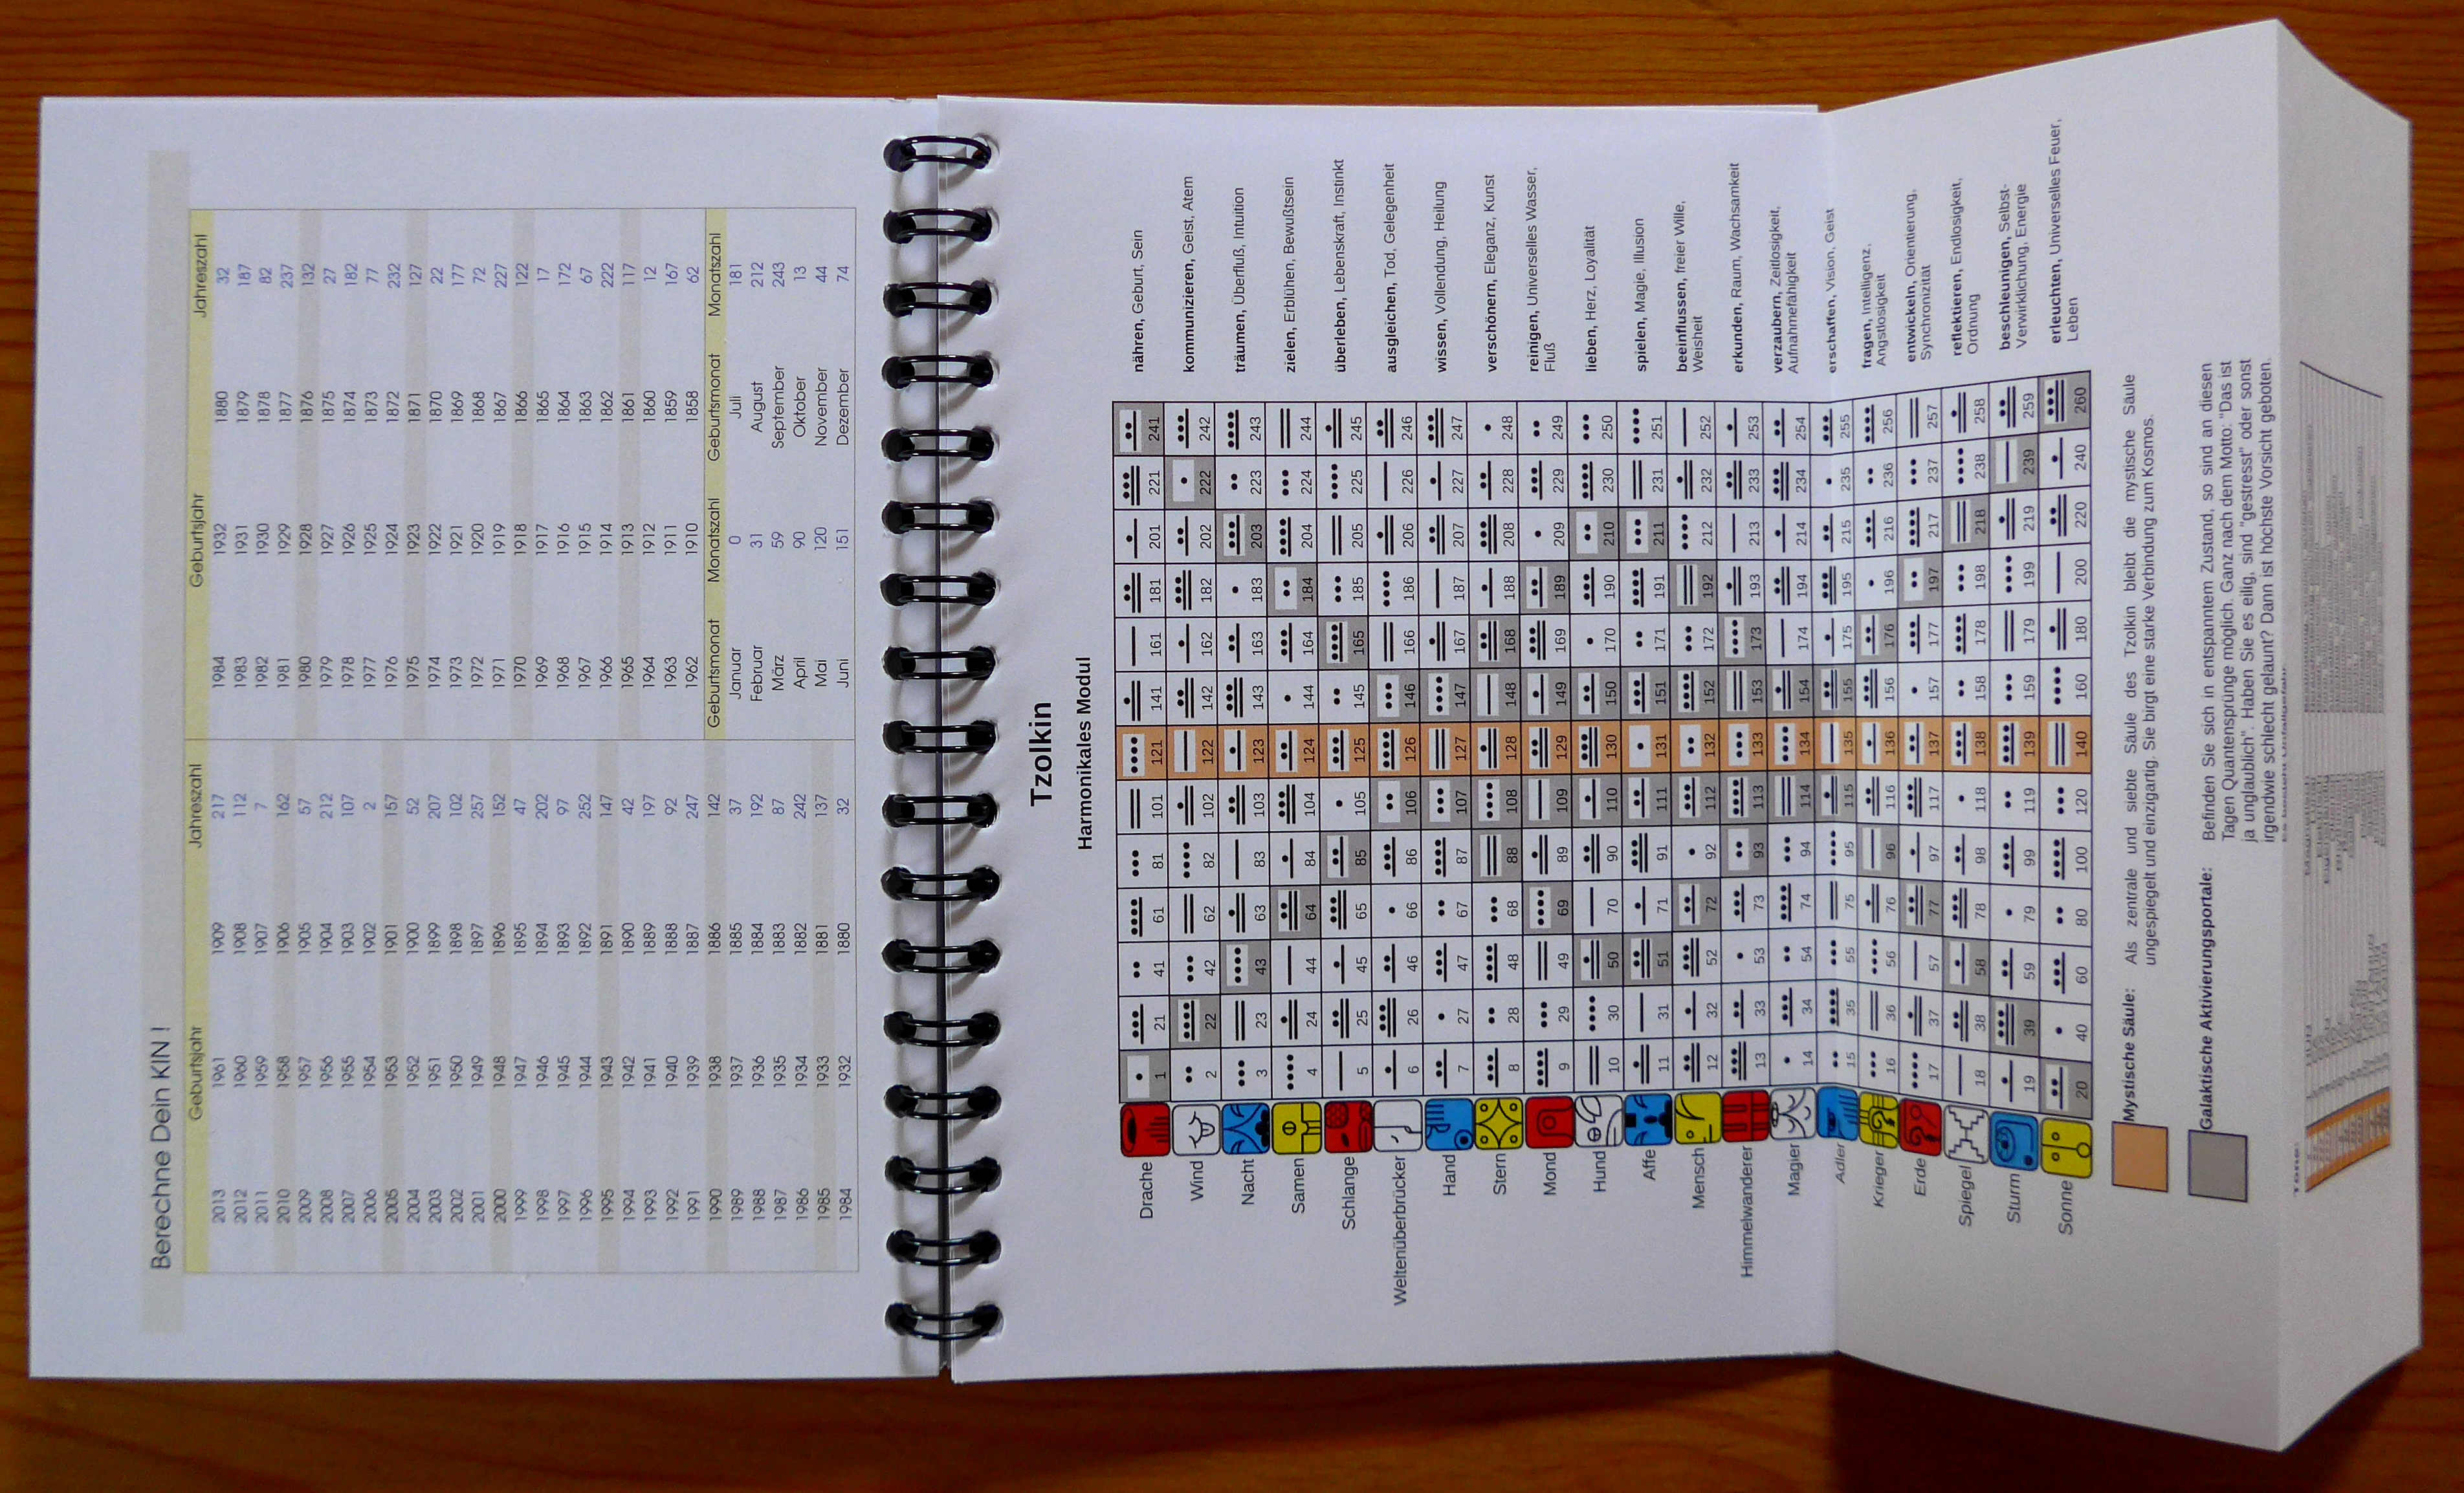 Berechne Dein KIN !
Geburtsjahr Jahreszahl Geburtsjahr Jahreszahl
2013 1961 1909 217 1984 1932 1880 32
2012 1960 1908 112 1983 1931 1879 187
2011 1959 1907 7 1982 1930 1878 82
2010 1958 1906 162 1981 1929 1877 237
2009 1957 1905 57 1980 1928 1876 132
2008 1956 1904 212 1979 1927 1875 27
2007 1955 1903 107 1978 1926 1874 182
2006 1954 1902 2 1977 1925 1873 77
2005 1953 1901 157 1976 1924 1872 232
2004 1952 1900 52 1975 1923 1871 127
2003 1951 1899 207 1974 1922 1870 22
2002 1950 1898 102 1973 1921 1869 177
2001 1949 1897 257 1972 1920 1868 72
2000 1948 1896 152 1971 1919 1867 227
1999 1947 1895 47 1970 1918 1866 122
1998 1946 1894 202 1969 1917 1865 17
1997 1945 1893 97 1968 1916 1864 172
1996 1944 1892 252 1967 1915 1863 67
1995 1943 1891 147 1966 1914 1862 222
1994 1942 1890 42 1965 1913 1861 117
1993 1941 1889 197 1964 1912 1860 12
1992 1940 1888 92 1963 1911 1859 167
1991 1939 1887 247 1962 1910 1858 62
1990 1938 1886 142 Geburtsmonat Monatszahl Geburtsmonat Monatszahl
1989 1937 1885 37 Januar 0 Juli 181
1988 1936 1884 192 Februar 31 August 212
1987 1935 1883 87 März 59 September 243
1986 1934 1882 242 April 90 Oktober 13
1985 1933 1881 137 Mai 120 November 44
1984 1932 1880 32 Juni 151 Dezember 74
Tzolkin
Harmonikales Modul
Drache 1 21 41 61 81 101 121 141 161 181 201 221 241 nähren, Geburt, Sein
Wind 2 22 42 62 82 102 122 142 162 182 202 222 242 kommunizieren, Geist, Atem
Nacht 3 23 43 63 83 103 123 143 163 183 203 223 243 träumen, Überfluß, Intuition
Samen 4 24 44 64 84 104 124 144 164 184 204 224 244 zielen, Erblühen, Bewußtsein
Schlange 5 25 45 65 85 105 125 145 165 185 205 225 245 überleben, Lebenskraft, Instinkt
Weltenüberbrücker 6 26 46 66 86 106 126 146 166 186 206 226 246 ausgleichen, Tod, Gelegenheit
Hand 7 27 47 67 87 107 127 147 167 187 207 227 247 wissen, Vollendung, Heilung
Stern 8 28 48 68 88 108 128 148 168 188 208 228 248 verschönern, Eleganz, Kunst
Mond 9 29 49 69 89 109 129 149 169 189 209 229 249 reinigen, Universelles Wasser,
Fluß
Hund 10 30 50 70 90 110 130 150 170 190 210 230 250 lieben, Herz, Loyalität
Affe 11 31 51 71 91 111 131 151 171 191 211 231 251 spielen, Magie, Illusion
Mensch 12 32 52 72 92 112 132 152 172 192 212 232 252 beeinflussen, freier Wille,
Weisheit
Himmelwanderer 13 33 53 73 93 113 133 153 173 193 213 233 253 erkunden, Raum, Wachsamkeit
Magier 14 34 54 74 94 114 134 154 174 194 214 234 254 verzaubern, Zeitlosigkeit,
Aufnahmefähigkeit
Adler 15 35 55 75 95 115 135 155 175 195 215 235 255 erschaffen, Vision, Geist
Krieger 16 36 56 76 96 116 136 156 176 196 216 236 256 fragen, Intelligenz,
Angstlosigkeit
Erde 17 37 57 77 97 117 137 157 177 197 217 237 257 entwickeln, Orientierung,
Synchronizität
Spiegel 18 38 58 78 98 118 138 158 178 198 218 238 258 reflektieren, Endlosigkeit,
Ordnung
Sturm 19 39 59 79 99 119 139 159 179 199 219 239 259 beschleunigen, Selbst-
Verwirklichung, Energie
Sonne 20 40 60 80 100 120 140 160 180 200 220 240 260 erleuchten, Universelles Feuer,
Leben
Mystische Säule: Als zentrale und siebte Säule des Tzolkin bleibt die mystische Säule
ungespiegelt und einzigartig. Sie birgt eine starke Verbindung zum Kosmos.
Galaktische Aktivierungsportale: Befinden Sie sich in entspanntem Zustand, so sind an diesen
Tagen Quantensprünge möglich. Ganz nach dem Motto: "Das ist
ja unglaublich". Haben Sie es eilig, sind "gestresst" oder sonst
irgendwie schlecht gelaunt? Dann ist höchste Vorsicht geboten.
Töne: